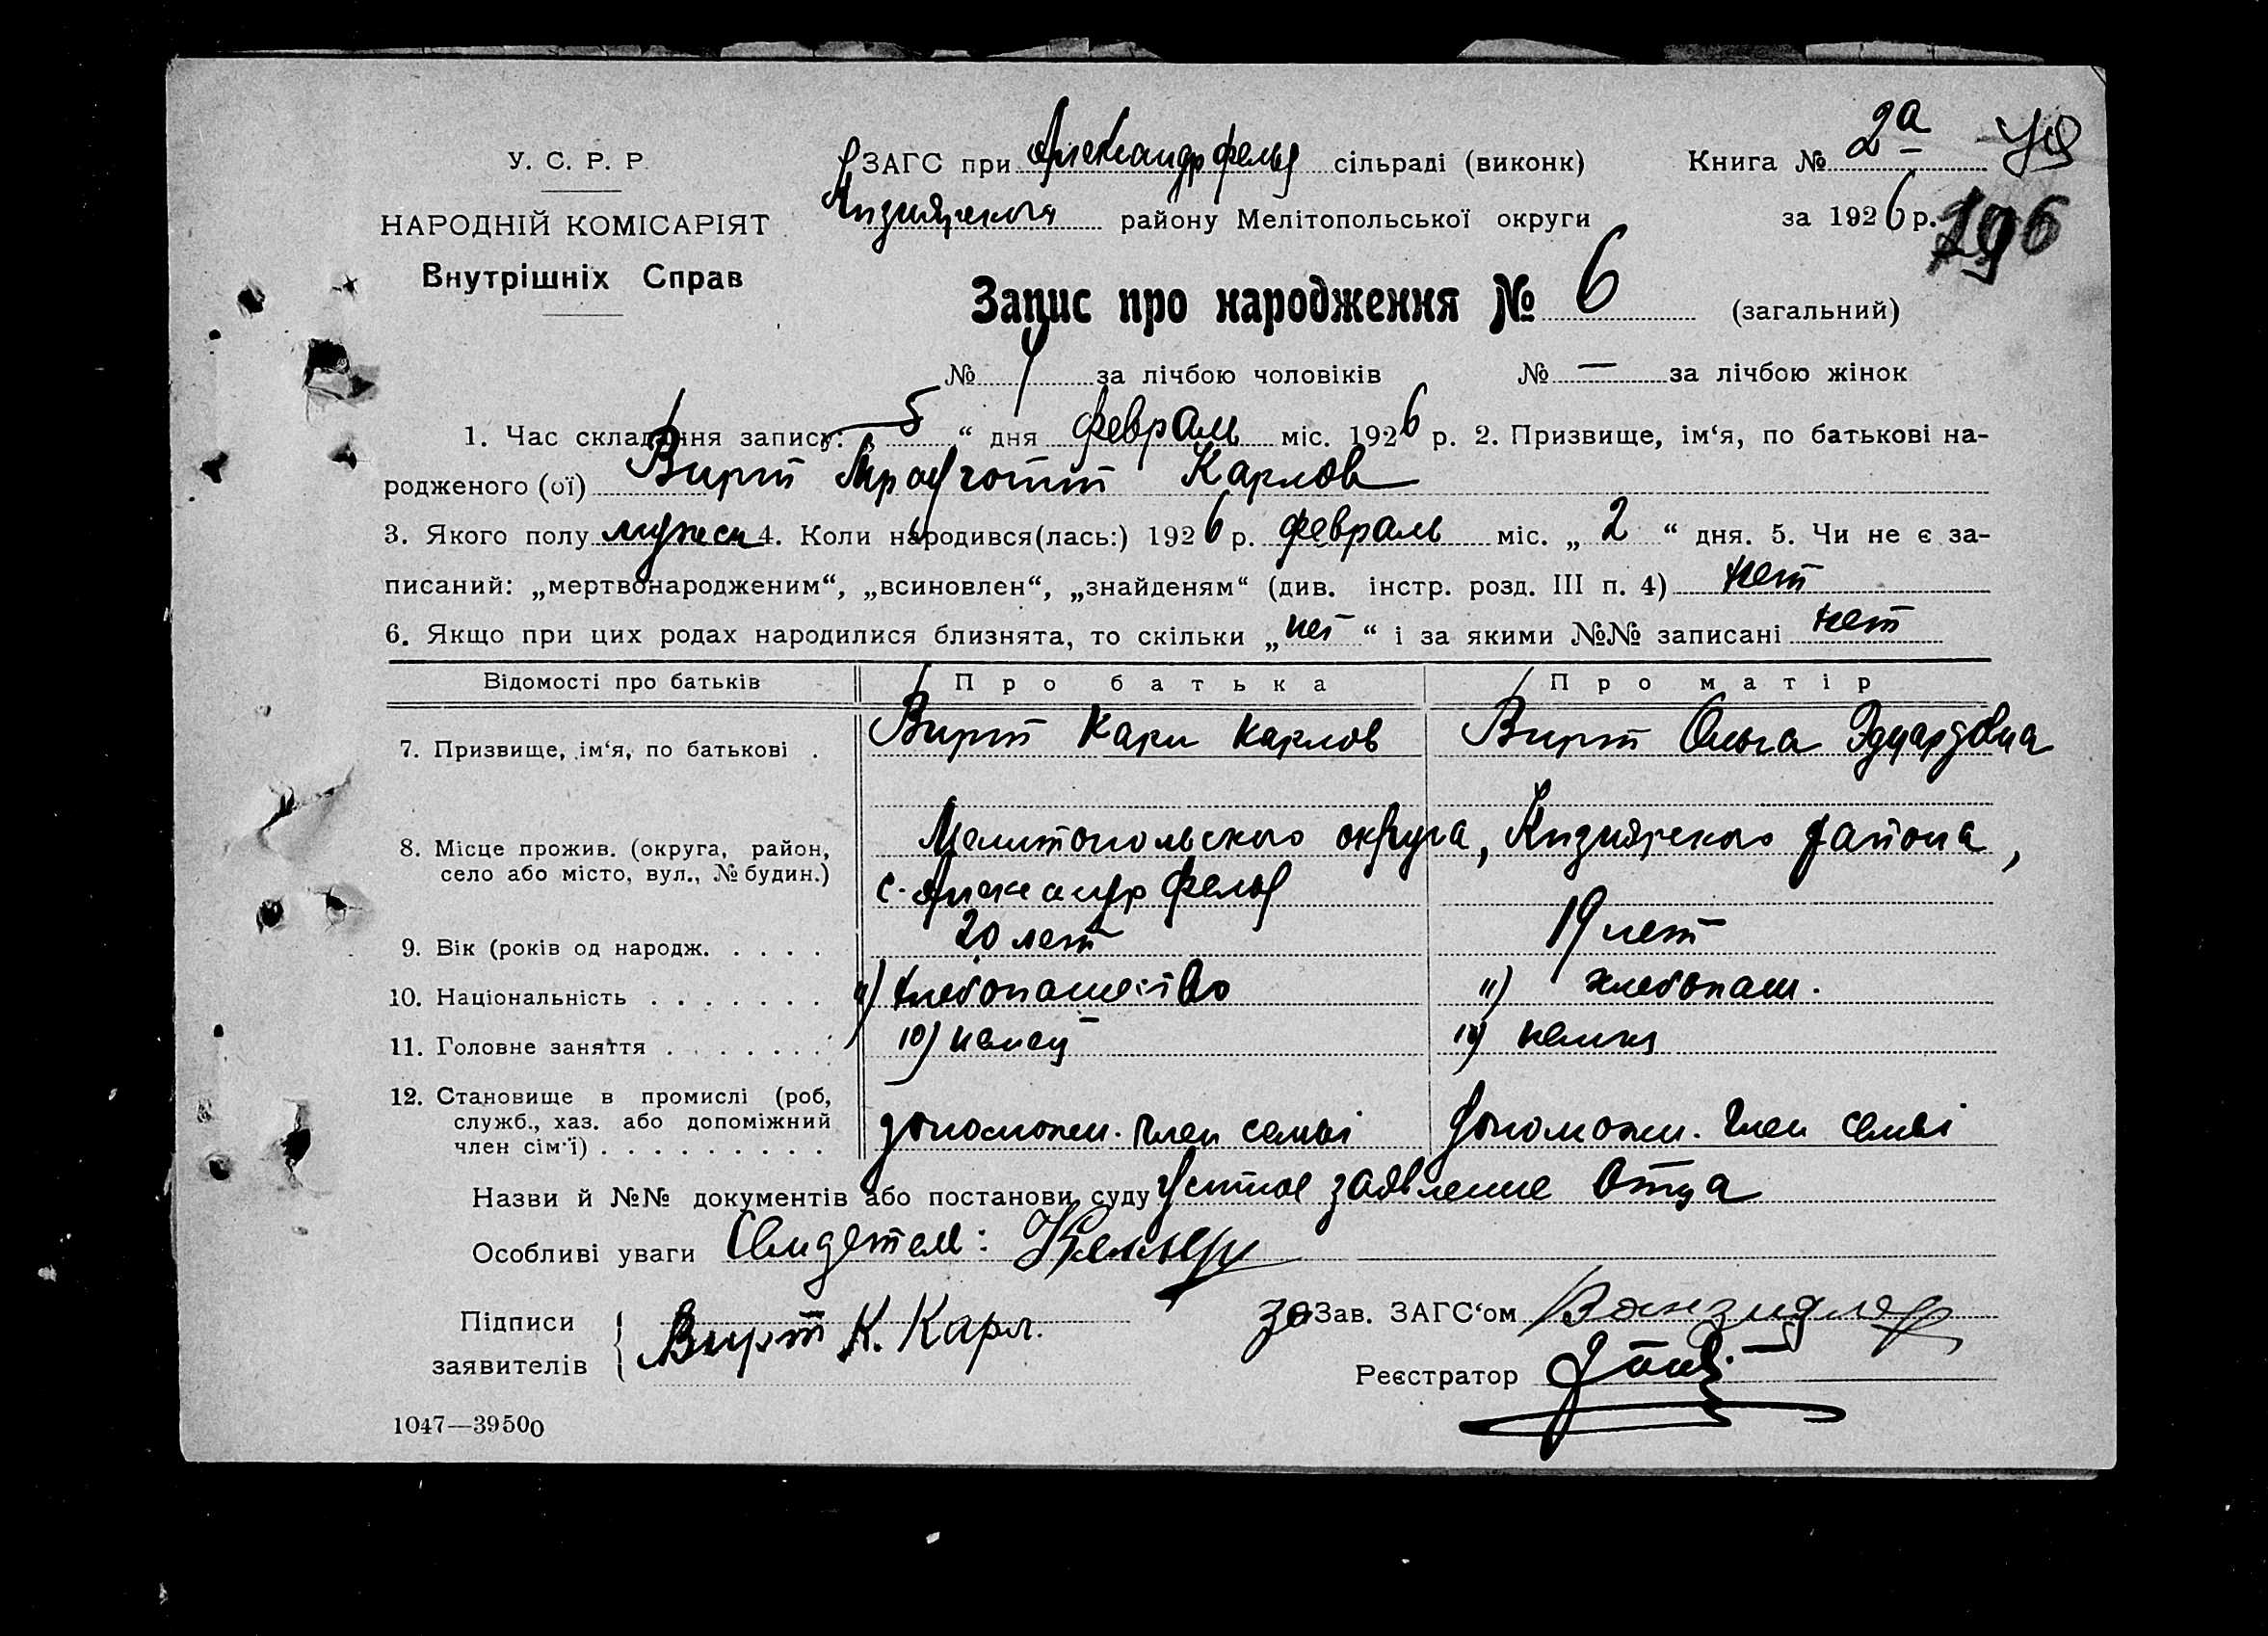 У. С. Р. Р.
НАРОДНІЙ КОМІСАРІЯТ
Внутрішніх Справ
ЗАГС при Александрфельд сільраді (виконк)
Кизиярского району Мелітопольської округи
Книга № 2а
за 1926 р.
196
Запис про народження № 6 (загальний)
№ 4 за лічбою чоловіків № — за лічбою жінок
1. Час складання запису: „ 5 “ дня февраль міс. 1926 р. 2. Призвище, ім‘я, по батькові на-
родженого (ої) Вирт Трауготт Карлов
3. Якого полу мужск 4. Коли народився(лась:) 1926 р. февраль міс. „ 2 “ дня. 5. Чи не є за-
писаний: „мертвонародженим“, „всиновлен“, „знайденям“ (див. інстр. розд. III п. 4) нет
6. Якщо при цих родах народилися близнята, то скільки „ нет “ і за якими №№ записані нет
Відомості про батьків Про батька Про матір
7. Призвище, ім‘я, по батькові . Вирт Карл Карлов Вирт Ольга Эдуардовна
8. Місце прожив. (округа, район, Мелитопольского округа, Кизиярского района,
село або місто, вул., № будин.) с. Александрфельд
9. Вік (років од народж. . . . . 20 лет 19 лет
10. Національність . . . . . . . 11) хлебопашество 11) хлебопаш.
11. Головне заняття . . . . . . . 10) немец 10) немка
12. Становище в промислі (роб,
служб., хаз. або допоміжний
член сім‘ї) . . . . . . . . . допоможн. член семьі допоможн. член семьі
Назви й №№ документів або постанови суду Устное заявление Отца
Особливі уваги Свидетель:
Підписи
заявителів Вирт К. Карл.
Зав. ЗАГС‘ом
Реєстратор
1047—39500